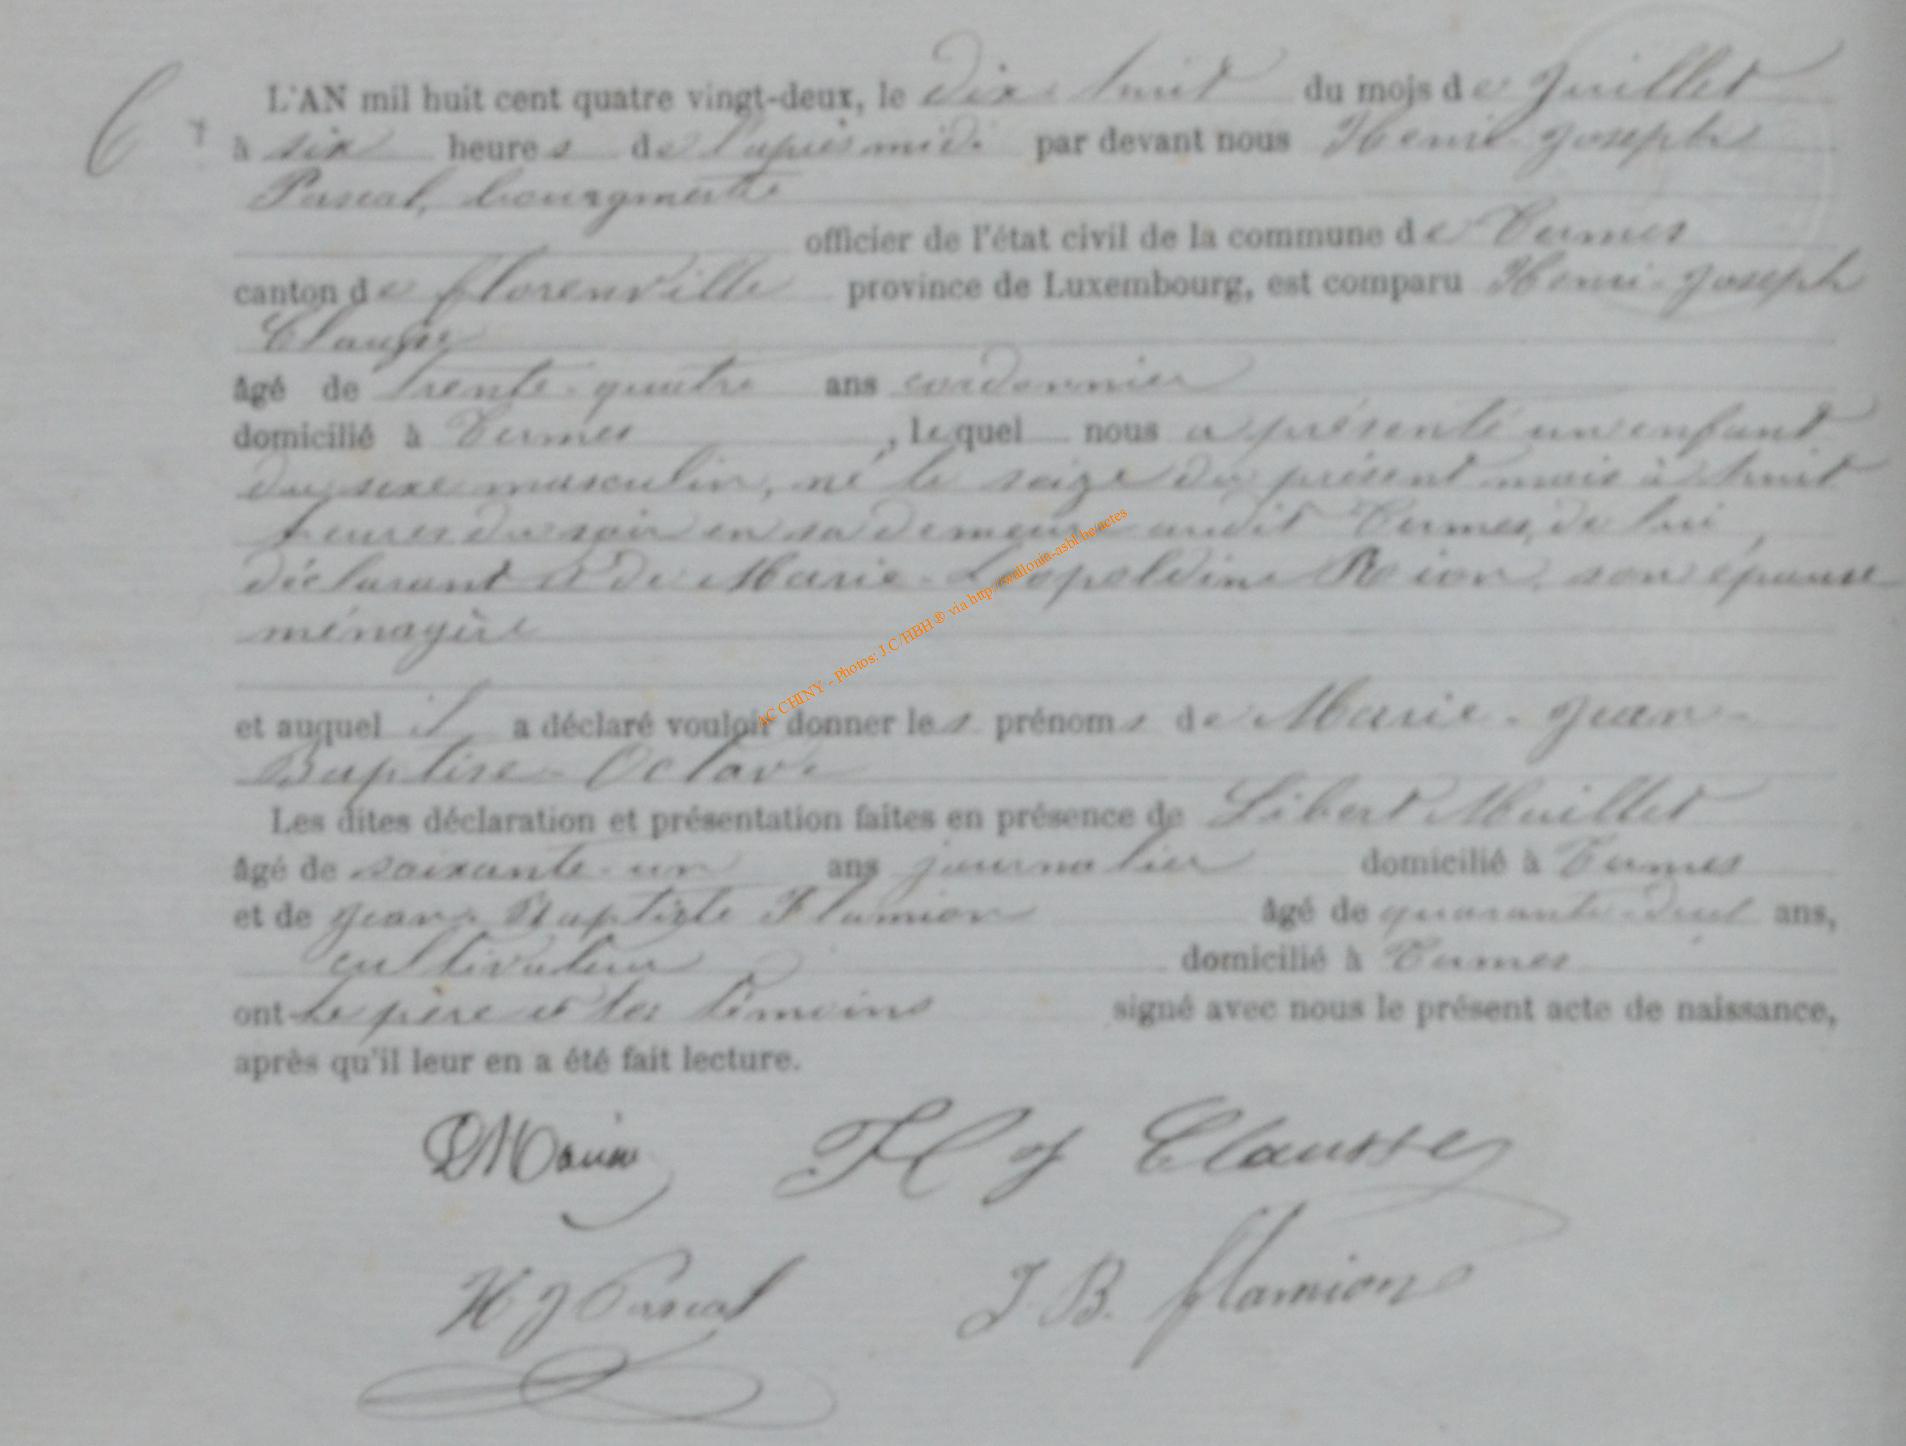 6
L'AN mil huit cent quatre vingt-deux, le dix huit du mois de Juillet
à six heures de l'après midi par devant nous Henri Joseph
Pascal, bourgmestre
officier de l'état civil de la commune de Termes
canton de florenville province de Luxembourg, est comparu Henri-Joseph
Clausse
âgé de trente-quatre ans cordonnier
domicilié à Termes, lequel nous a présenté un enfant
du sexe masculin, né le seize du présent mois à huit
heures du soir en sa demeure audit Termes, de lui
déclarant et de Marie-Léopoldine Rion, son épouse
ménagère
et auquel il a déclaré vouloir donner les prénoms de Marie-Jean-
Baptise-Octave
Les dites déclaration et présentation faites en présence de Libert
âgé de soixante-un ans journalier domicilié à Termes
et de Jean-Baptiste Flamion âgé de quarante-deux ans,
cultivateur domicilié à Termes
ont le père et les témoins signé avec nous le présent acte de naissance,
après qu'il leur en a été fait lecture.
H J Clausse
H J Pascal J. B. flamion
AC CHINY - Photos: J.C/HBH ® via http://wallonie-asbl.be/actes